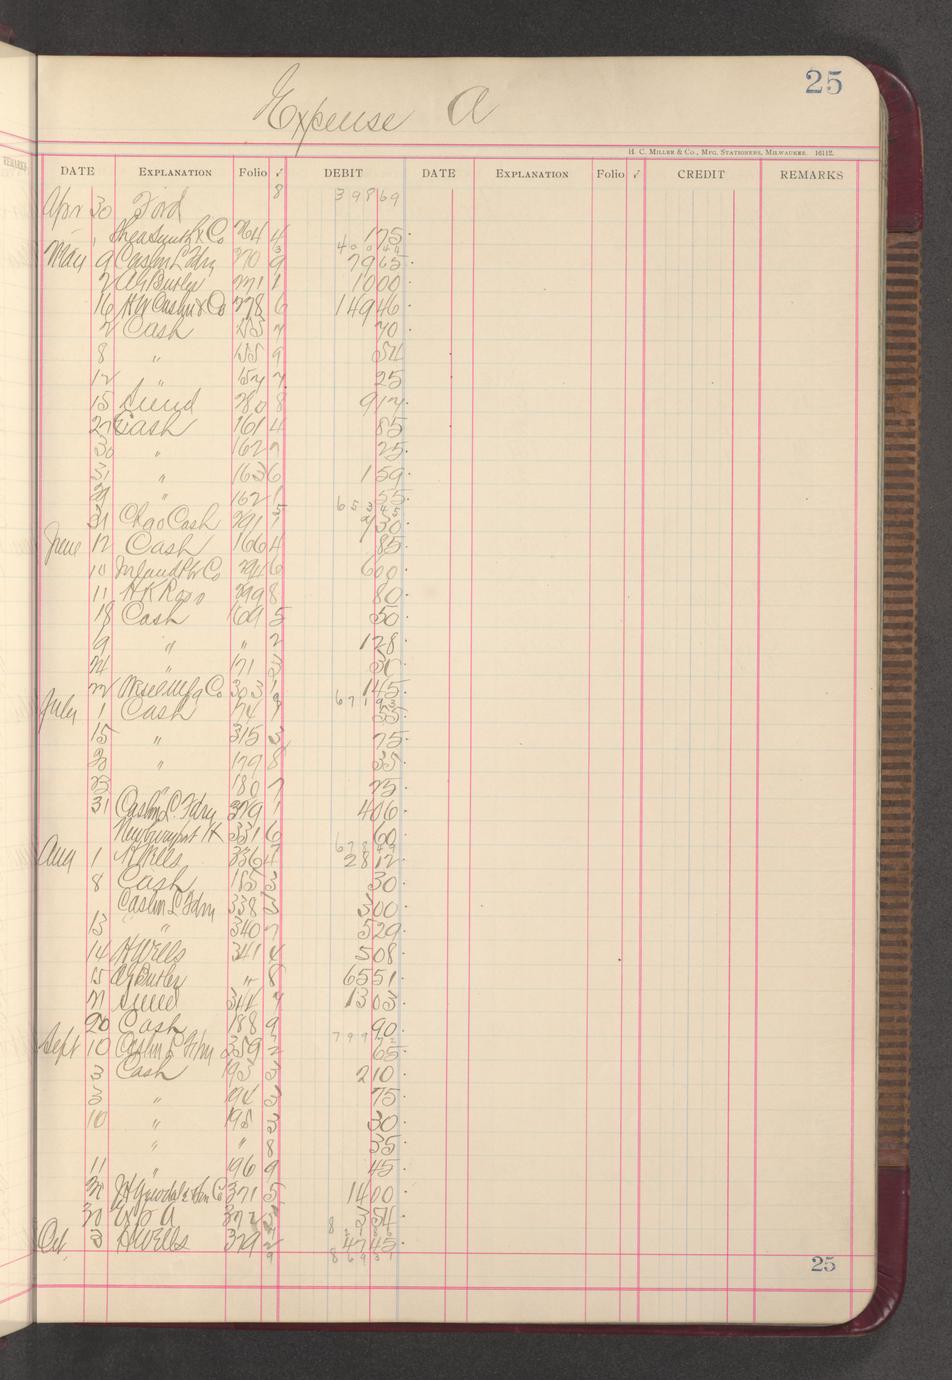 25
Expense A
H. C. MILLER & CO., MFG. STATIONERS, MILWAUKEE. 16112.
DATE EXPLANATION Folio ✓ DEBIT DATE EXPLANATION Folio ✓ CREDIT REMARKS
Apr 30 Ford 8 398 69
Shea Smith & Co 264 4 1 75
400 44
May 9 Caslin L Fdry 270 9 79 65
2 A G Butler 271 1 10 00
16 H W Caslin & Co 278 6 149 46
2 Cash 153 7 70
8 " 155 9 54
12 " 157 7 25
15 Sund 280 8 9 12
27 Cash 161 4 85
30 " 162 7 25
31 " 163 6 1 59
29 " 162 1 55
653 45
31 Chgo Cash 291 1 7 30
June 12 Cash 166 4 85
10 Inland Ptr Co 294 6 6 00
11 H K Ross 299 8 80
18 Cash 169 5 50
9 " " 2 1 28
24 " 171 3 50
22 Mfg Co 303 1 1 45
671 93
July 1 Cash 174 9 55
15 " 315 3 75
20 " 179 8 35
23 " 180 7 25
31 Caslin L. Fdry 329 1 4 06
331 6 60
678 49
Aug 1 H Wells 336 4 28 12
8 Cash 185 3 30
Caslin L Fdry 338 3 3 00
13 " 340 7 5 29
14 H Wells 341 4 5 08
15 A G Butler " 8 65 51
21 Sund 344 7 13 03
20 Cash 188 9 90
799 72
Sept 10 Caslin L Fdry 359 2 65
3 Cash 193 3 2 10
3 " 194 3 75
10 " 195 3 30
" " 8 35
11 " 196 9 45
371 5 14 00
30 Exp A 372 3 54
Oct. 3 H Wells 379 2 47 45
9 869 31
25